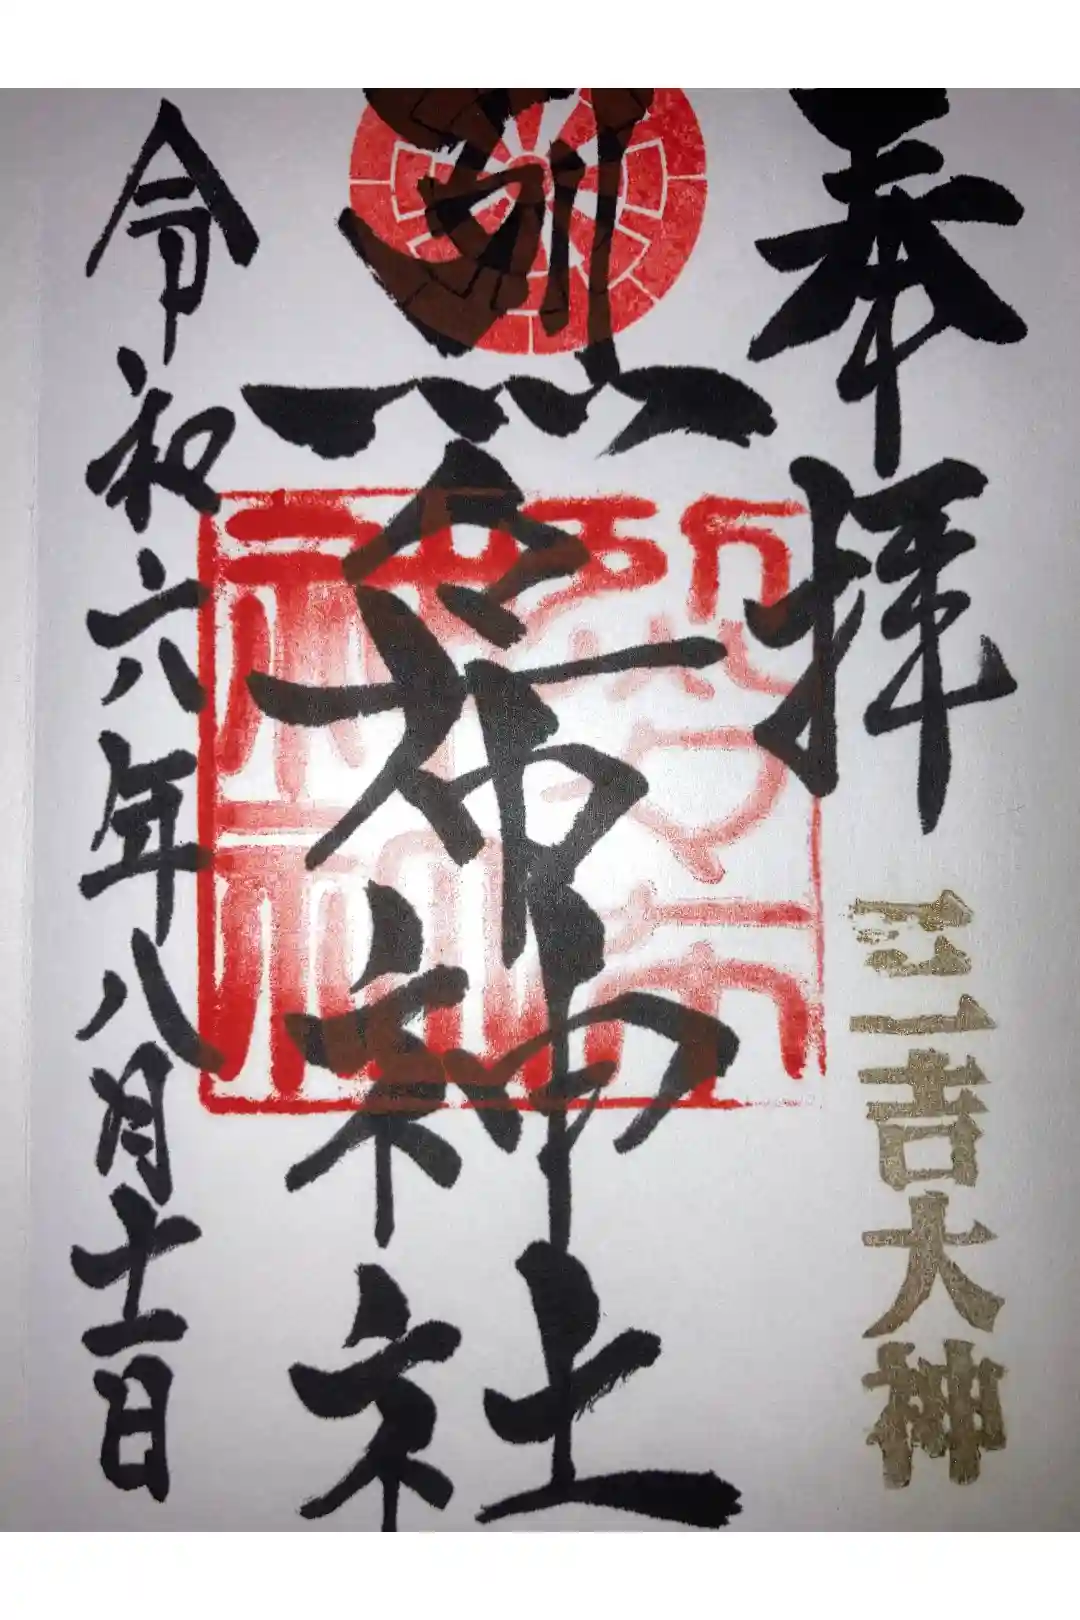 奉拝
三吉大神
烈々布神社
令和六年八月十一日